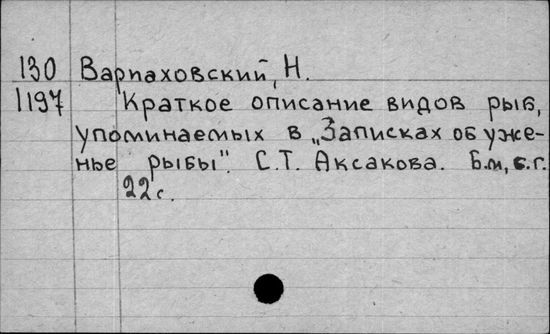 130 Варпаховский, Н.
1197 Краткое описание видов рыб,
упоминаемых в „Записках об уже-
нье рыбы". С.Т. Аксакова. Б.м, б.г.
22 с.